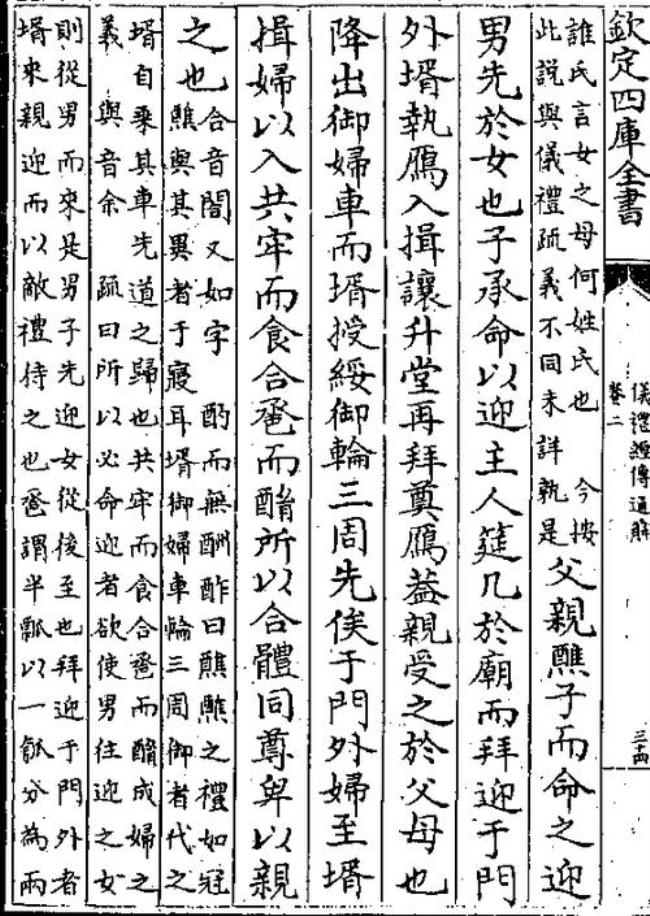 欽定四庫全書
儀禮經傳通解
卷二
三十四
誰氏言女之母何姓氏也　今按
此說與儀禮疏義不同未詳孰是
父親醮子而命之迎
男先於女也子承命以迎主人筵几於廟而拜迎于門
外壻執鴈入揖讓升堂再拜奠鴈蓋親受之於父母也
降出御婦車而壻授綏御輪三周先俟于門外婦至壻
揖婦以入共牢而食合巹而酳所以合體同尊卑以親
之也
合音閤又如字　酌而無酬酢曰醮醮之禮如冠
醮與其異者于寢耳壻御婦車輪三周御者代之
壻自乘其車先道之歸也共牢而食合巹而酳成婦之
義　與音余　疏曰所以必命迎者欲使男往迎之女
則從男而來是男子先迎女從後至也拜迎于門外者
壻來親迎而以敵禮待之也巹謂半瓢以一瓠分為兩